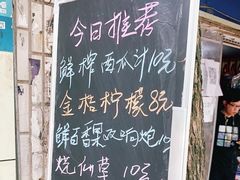 今日推荐
鲜榨西瓜汁10元
金桔柠檬8元
鲜百香果双响炮1
烧仙草 10元